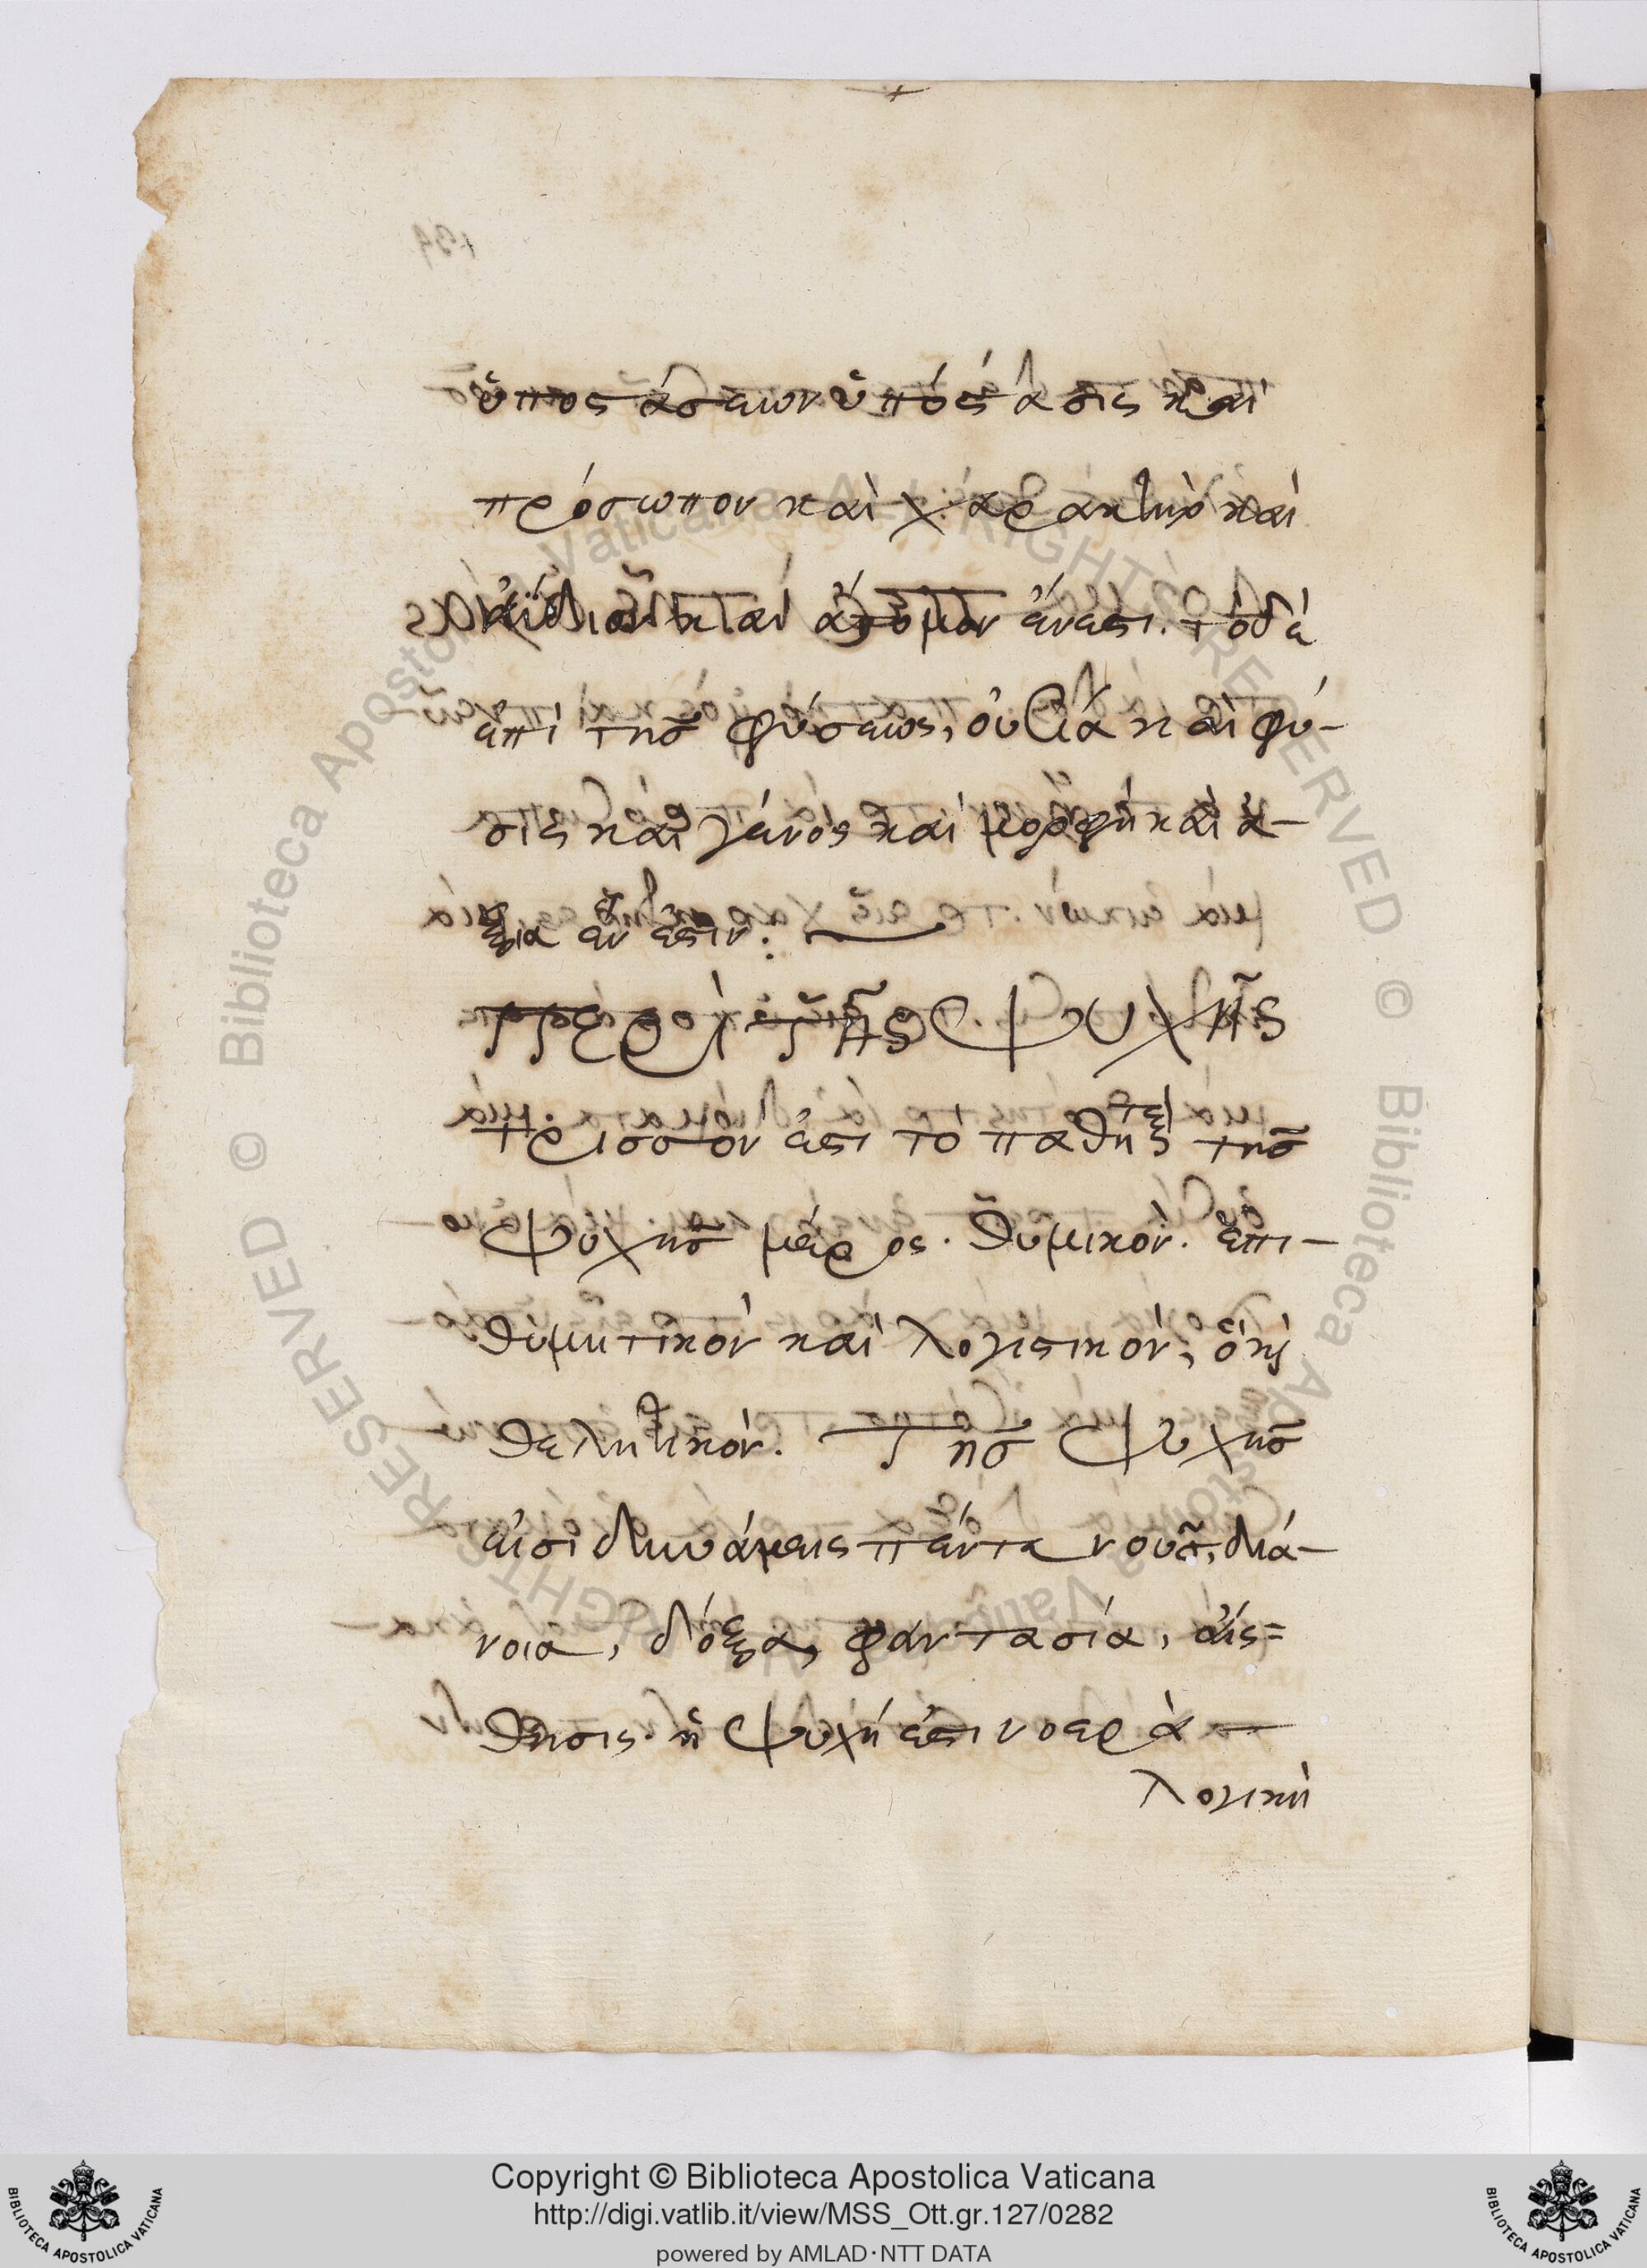 ὑποστάσεων ὑπόστασις καὶ
πρόσωπον καὶ χαρακτὴρ καὶ
ἴδιον καὶ ἄτομον ἕν ἐστι. τὸ δὲ
ἐπὶ τῆς φύσεως, οὐσία καὶ φύ-
σις καὶ γένος καὶ μορφὴ καὶ ἀ-
ξία ἕν ἐστιν:
Περὶ τῆς ψυχῆς
τρισσόν ἐστι τὸ τῆς
ψυχῆς μέρος. θυμικόν. ἐπι-
θυμητικὸν καὶ λογιστικόν,
θελητικόν. Τῆς ψυχῆς
εἰσὶ δυνάμεις πέντε νοῦς, διά-
νοια, δόξα, φαντασία, αἴς=
θησις. ἡ ψυχή ἐστι νοερὰ
λογικὴ
Copyright © Biblioteca Apostolica Vaticana
http://digi.vatlib.it/view/MSS_Ott.gr.127/0282
powered by AMLAD·NTT DATA
BIBLIOTECA APOSTOLICA VATICANA
BIBLIOTECA APOSTOLICA VATICANA